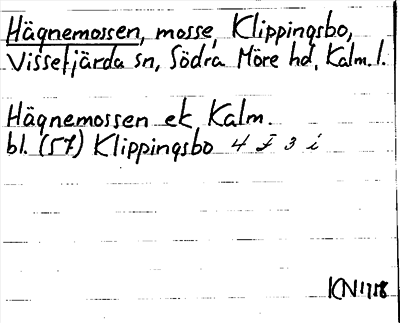 Hägnemossen, mosse, Klippingsbo,
Vissefjärda sn, Södra Möre hd, Kalm. l.
Hägnemossen ek Kalm.
bl. (57) Klippingsbo 4 F 3 i
KN 1958